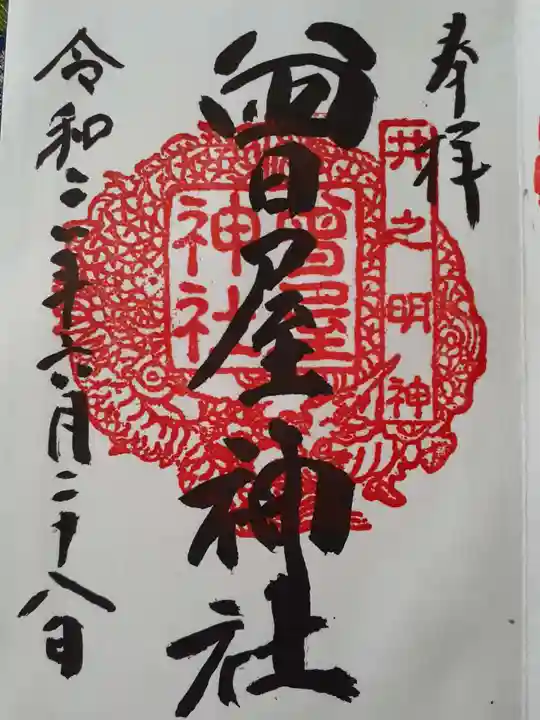 奉拝
井之明神
曾屋神社
曾屋
神社
令和二年六月二十八日